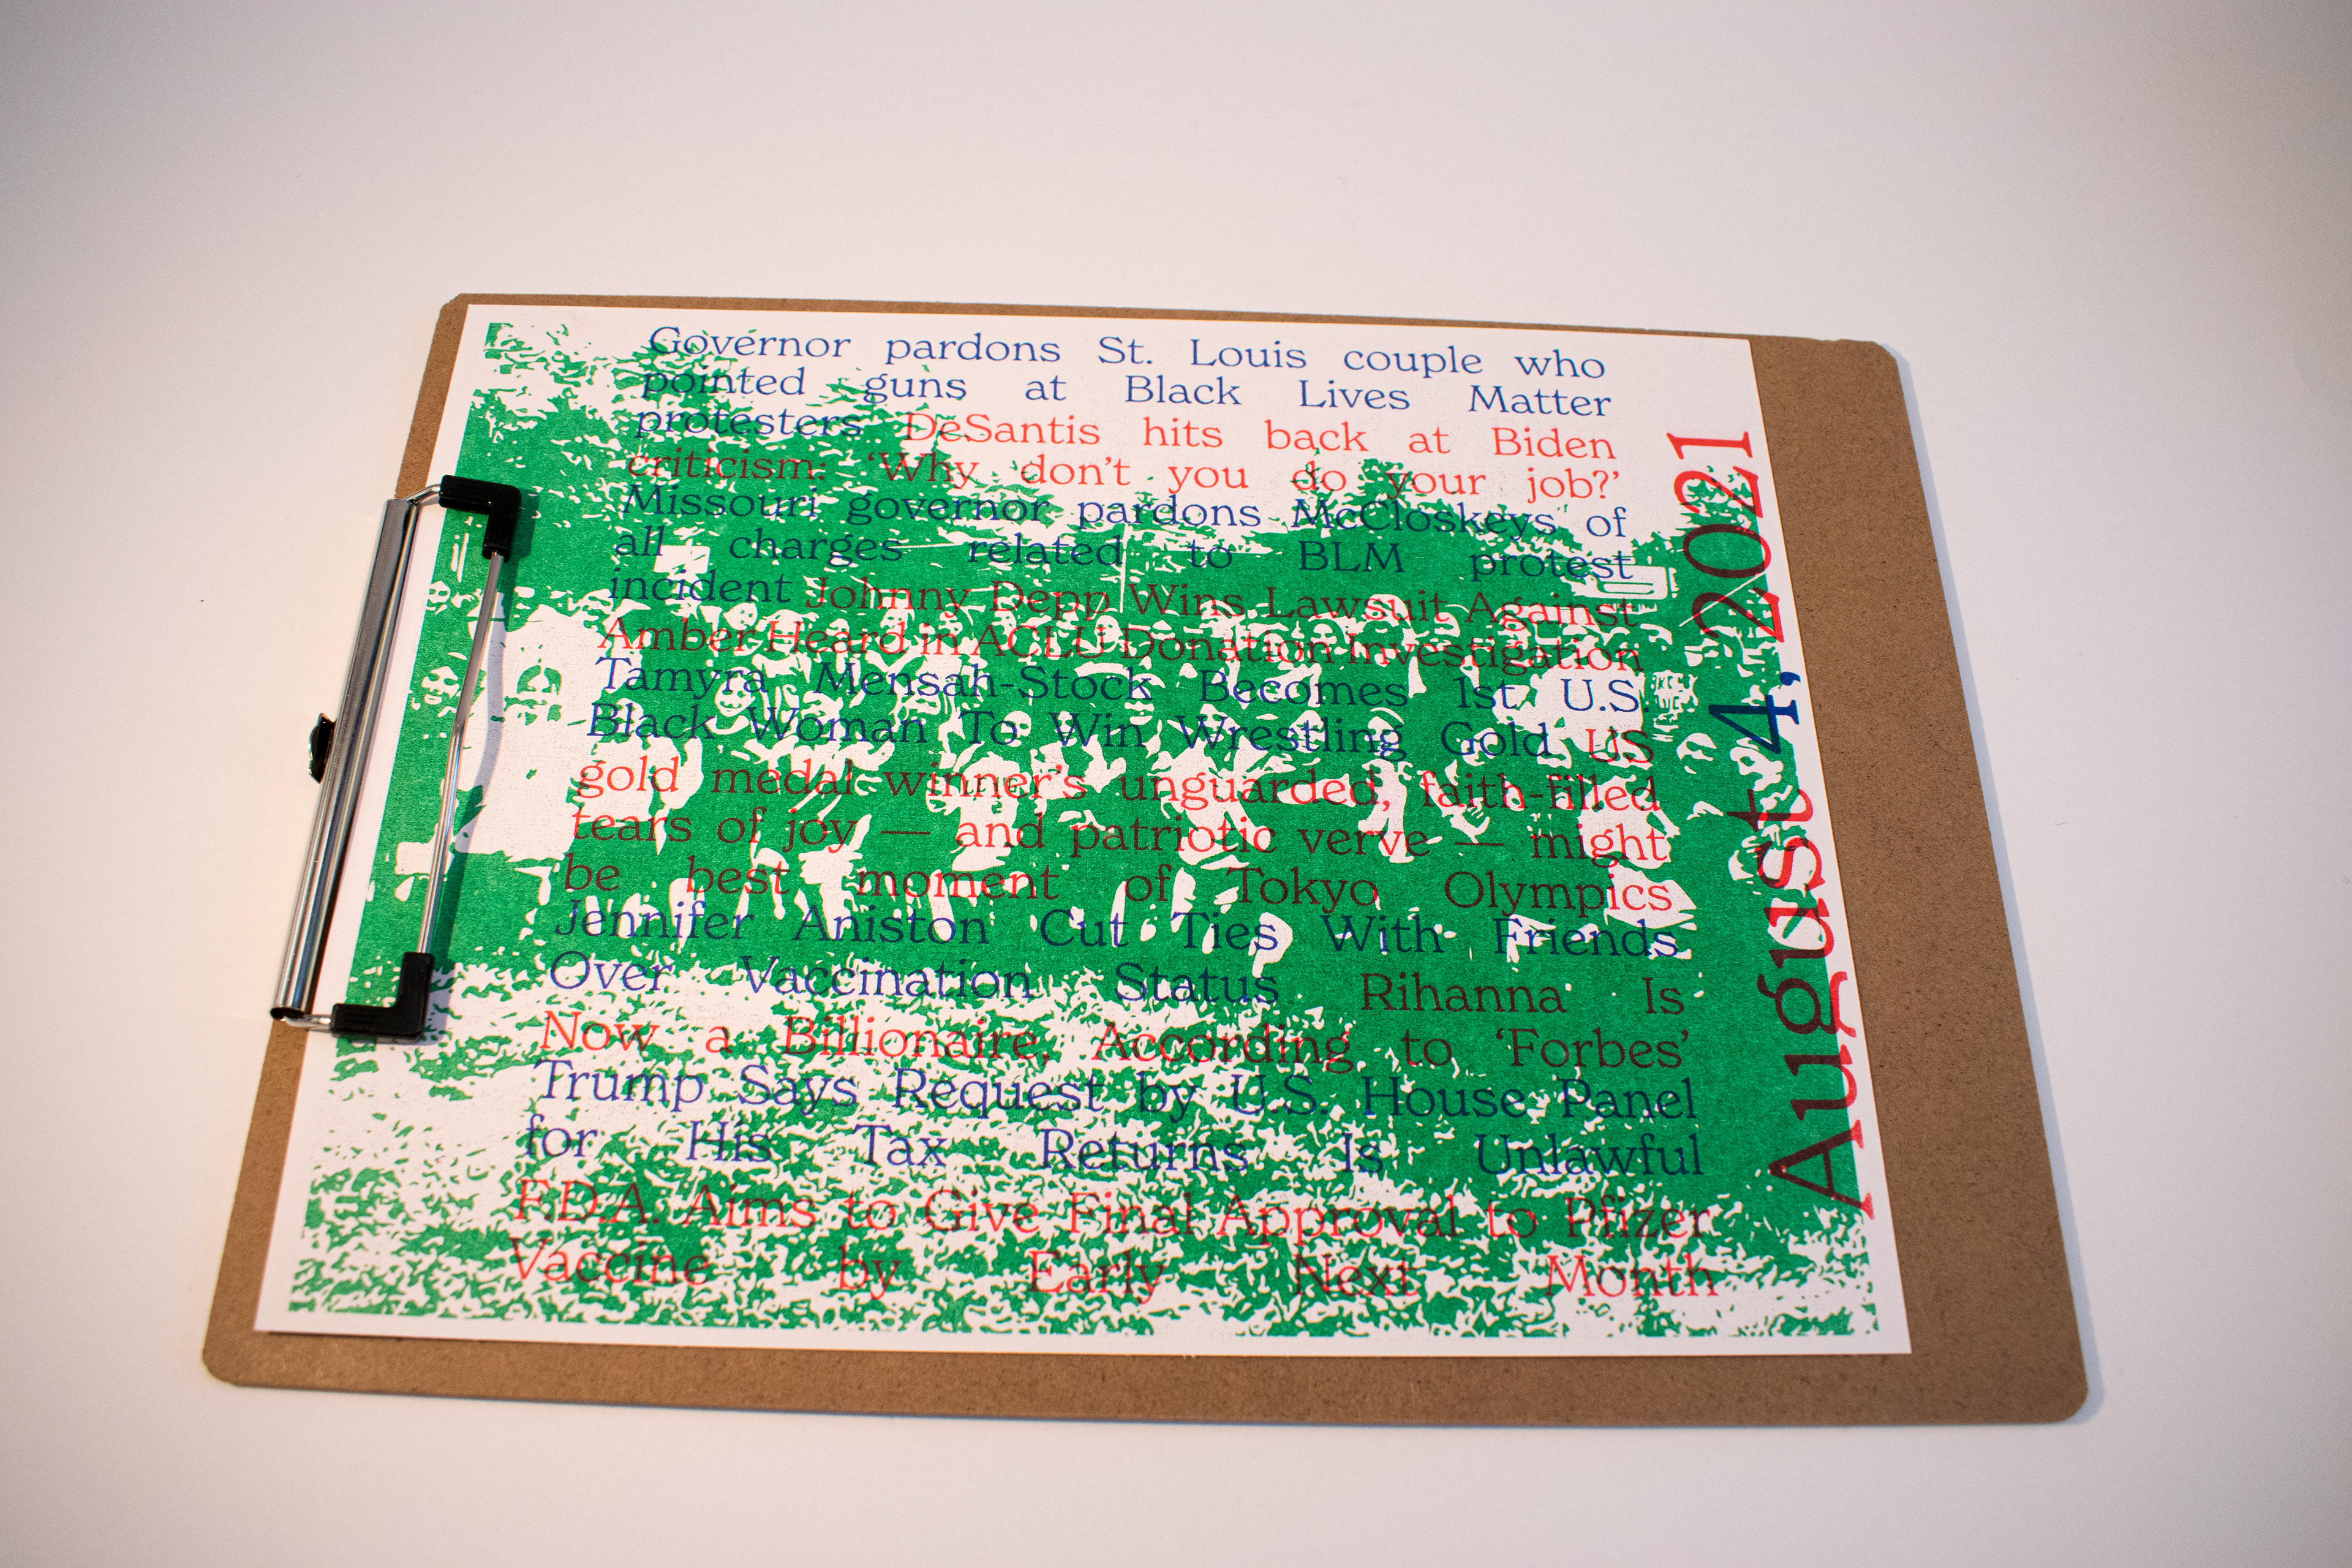 Governor pardons St. Louis couple who
pointed guns at Black Lives Matter
protesters DeSantis hits back at Biden
criticism: ‘Why don’t you do your job?’
Missouri governor pardons McCloskeys of
all charges related to BLM protest
incident Johnny Depp Wins Lawsuit Against
Amber Heard in ACLU Donation Investigation
Tamyra Mensah-Stock Becomes 1st U.S.
Black Woman To Win Wrestling Gold US
gold medal winner’s unguarded, faith-filled
tears of joy — and patriotic verve — might
be best moment of Tokyo Olympics
Jennifer Aniston Cut Ties With Friends
Over Vaccination Status Rihanna Is
Now a Billionaire, According to ‘Forbes’
Trump Says Request by U.S. House Panel
for His Tax Returns Is Unlawful
F.D.A. Aims to Give Final Approval to Pfizer
Vaccine by Early Next Month
August 4, 2021